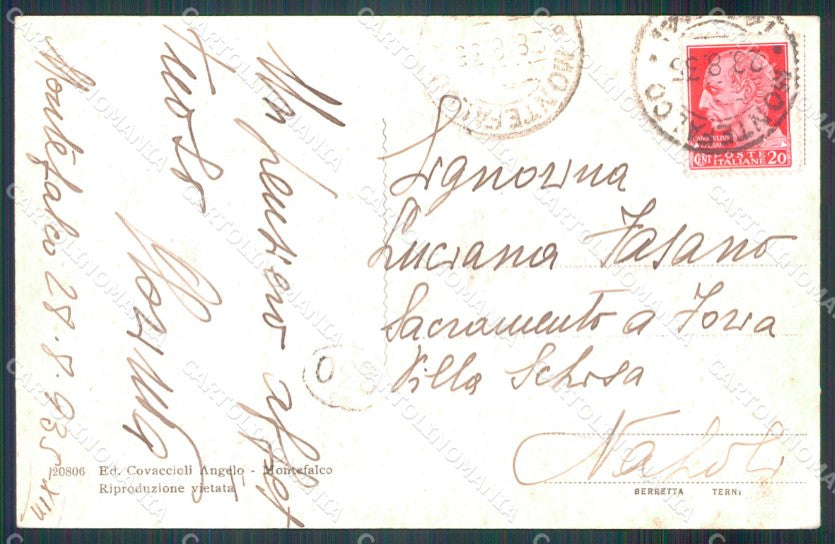 Montefalco 28.8.935 XIII
Un pensiero affet
tuoso
Signorina
Luciana Fasano
Sacramento a Foria
Villa Schisa
Napoli
MONTEFALCO
MONTEFALCO
POSTE
ITALIANE
CENT 20
20806 Ed. Covaccioli Angelo - Montefalco
Riproduzione vietata
BERRETTA TERNI
CARTOLINOMANIA